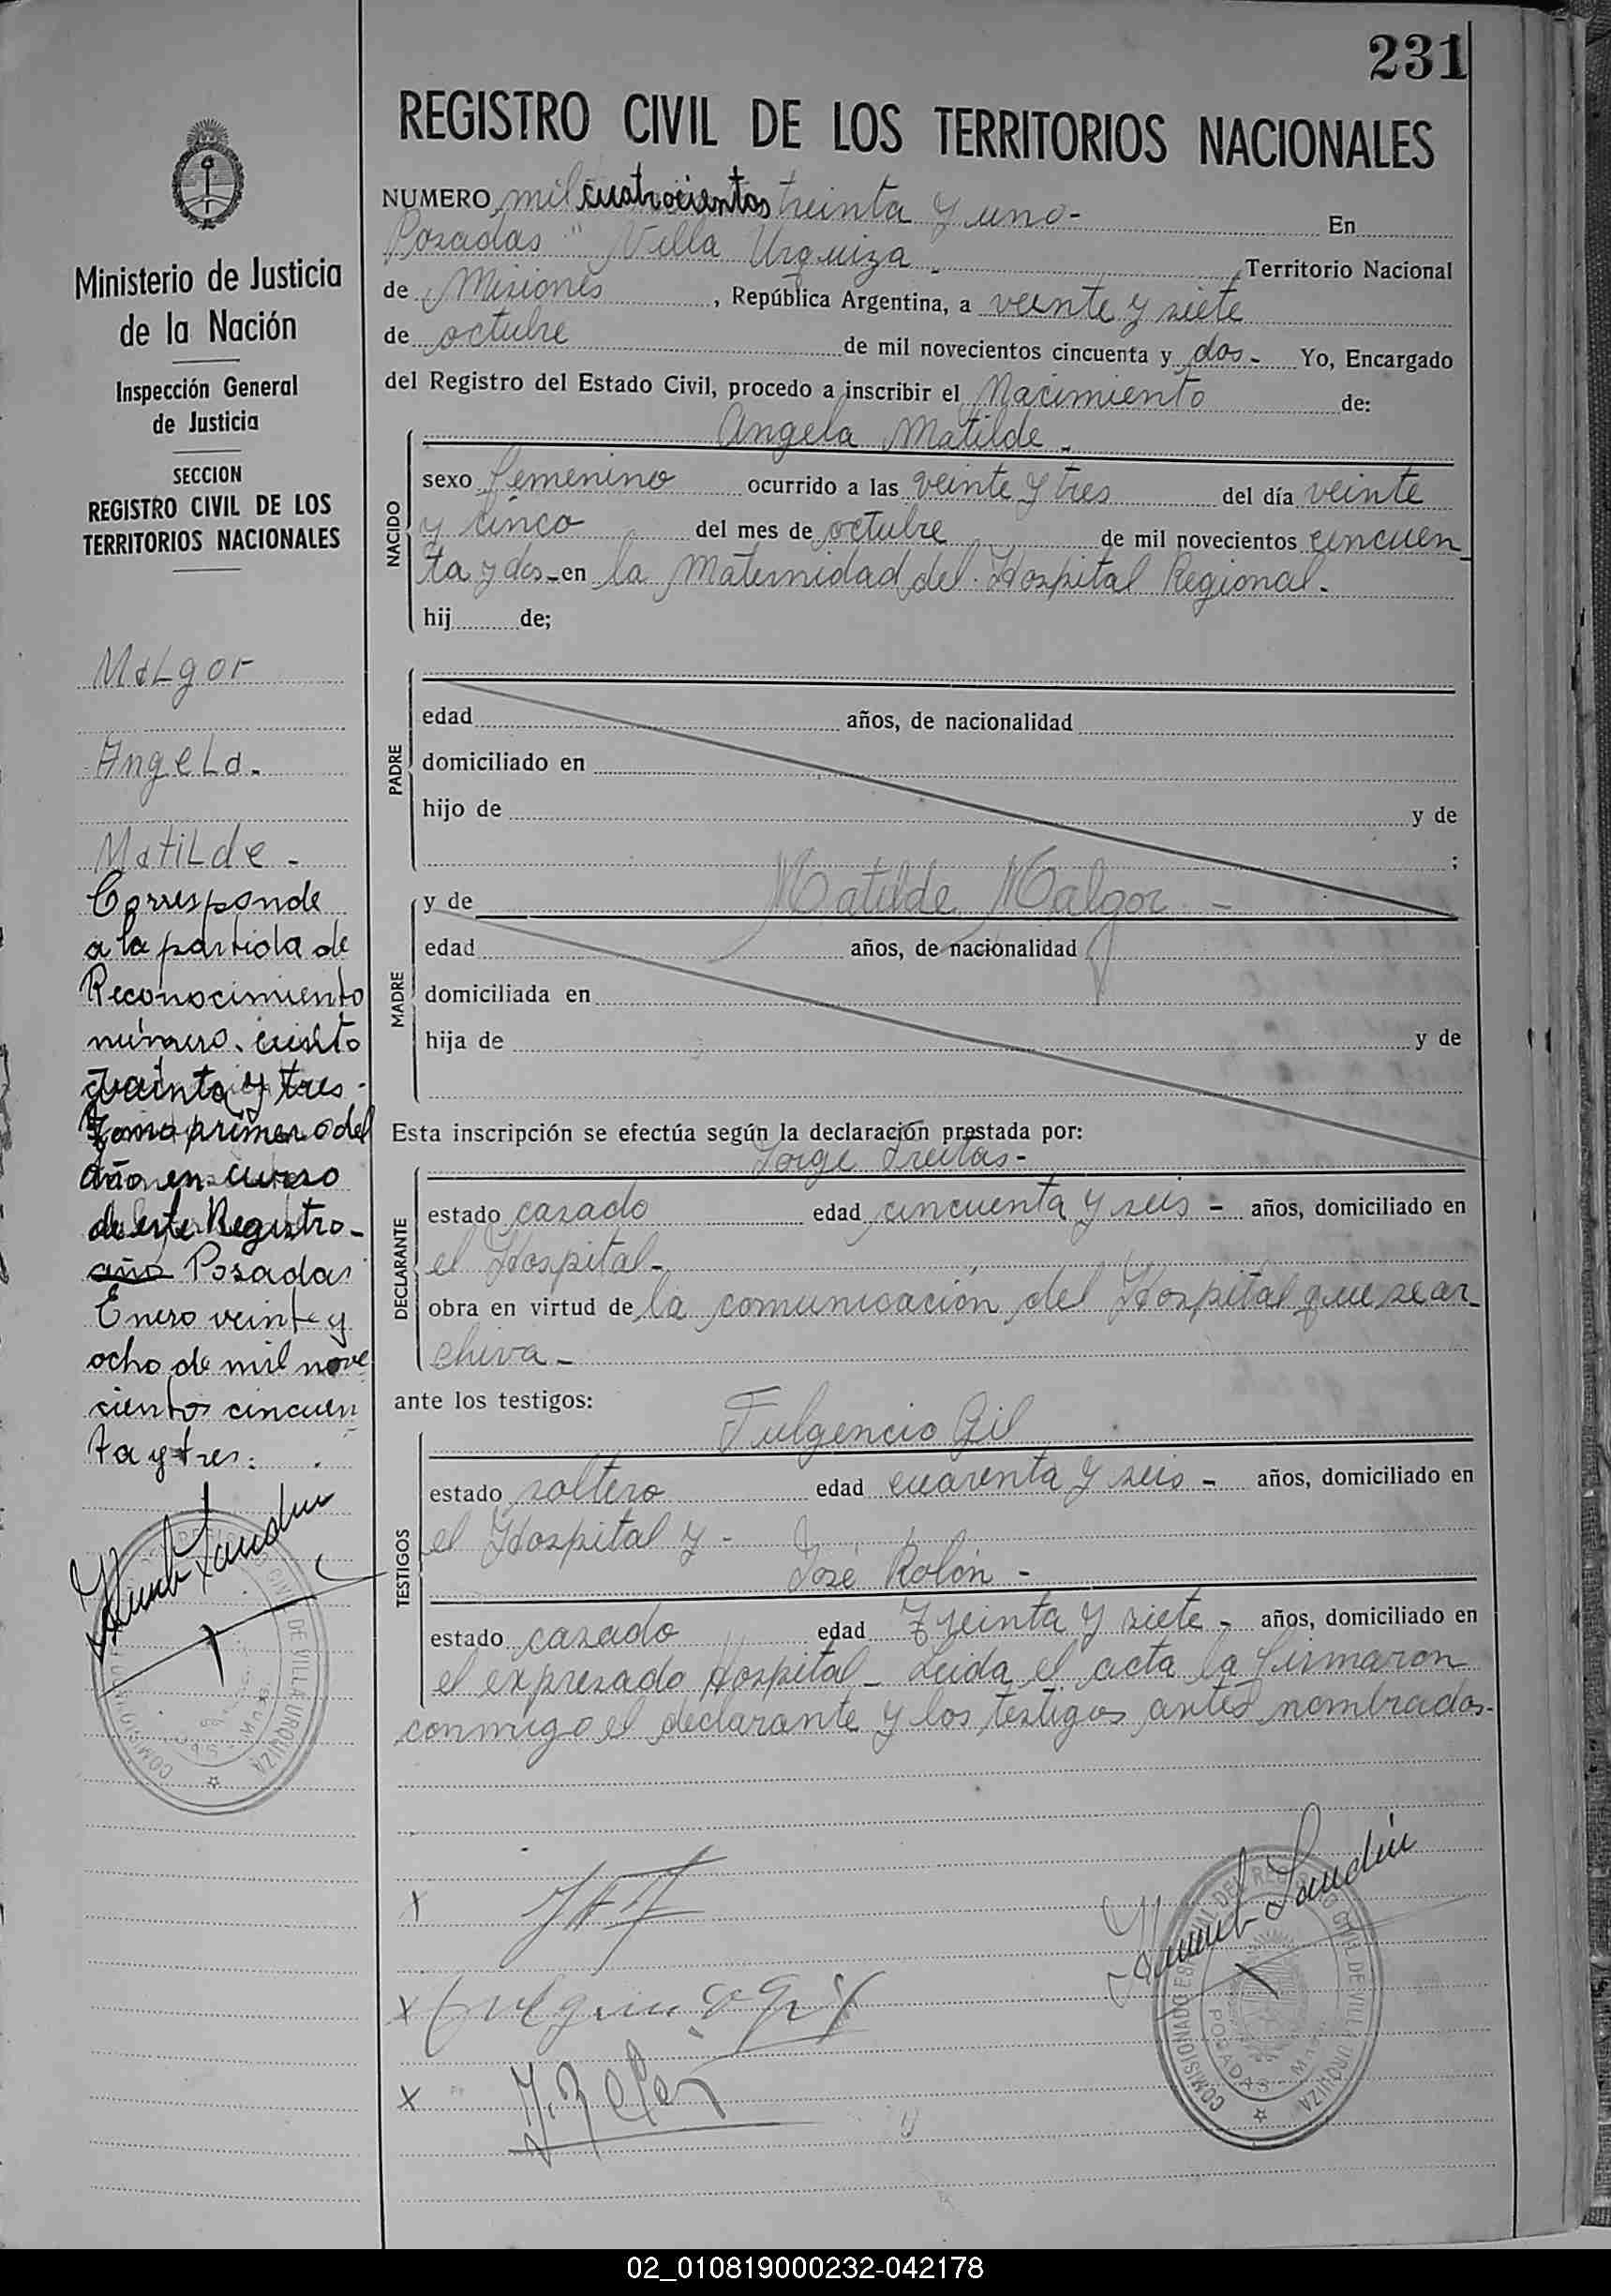 231
REGISTRO CIVIL DE LOS TERRITORIOS NACIONALES
NUMERO mil cuatrocientos treinta y uno- En
Posadas " Villa Urquiza - Territorio Nacional
de Misiones, República Argentina, a veinte y siete
de octubre de mil novecientos cincuenta y dos- Yo, Encargado
del Registro del Estado Civil, procedo a inscribir el Nacimiento de:
Angela Matilde -
NACIDO
sexo femenino ocurrido a las veinte y tres del día veinte
y cinco del mes de octubre de mil novecientos cincuen
ta y dos-en la Maternidad del Hospital Regional.
hij de;
PADRE
edad años, de nacionalidad
domiciliado en
hijo de y de
;
MADRE
y de Matilde Malgor -
edad años, de nacionalidad
domiciliada en
hija de y de
Esta inscripción se efectúa según la declaración prestada por:
Jorge Freitas-
DECLARANTE
estado casado edad cincuenta y seis - años, domiciliado en
el Hospital-
obra en virtud de la comunicación del Hospital que se ar
chiva-
ante los testigos:
Fulgencio Gil
TESTIGOS
estado soltero edad cuarenta y seis - años, domiciliado en
el Hospital y -
José Rolón -
estado casado edad treinta y siete - años, domiciliado en
el expresado Hospital - Leida el acta la firmaron
conmigo el declarante y los testigos antes nombrados.
Ministerio de Justicia
de la Nación
Inspección General
de Justicia
SECCION
REGISTRO CIVIL DE LOS
TERRITORIOS NACIONALES
Malgor
Angela.
Matilde -
Corresponde
a la partida de
Reconocimiento
número. ciento
treinta y tres.
Tomo primero del
año en curso
de este Registro-
año Posadas
Enero veinte y
ocho de mil nove
cientos cincuen
ta y tres.
COMISIONADO ESPECIAL DEL REGISTRO CIVIL DE VILLA URQUIZA
POSADAS
02_010819000232-042178